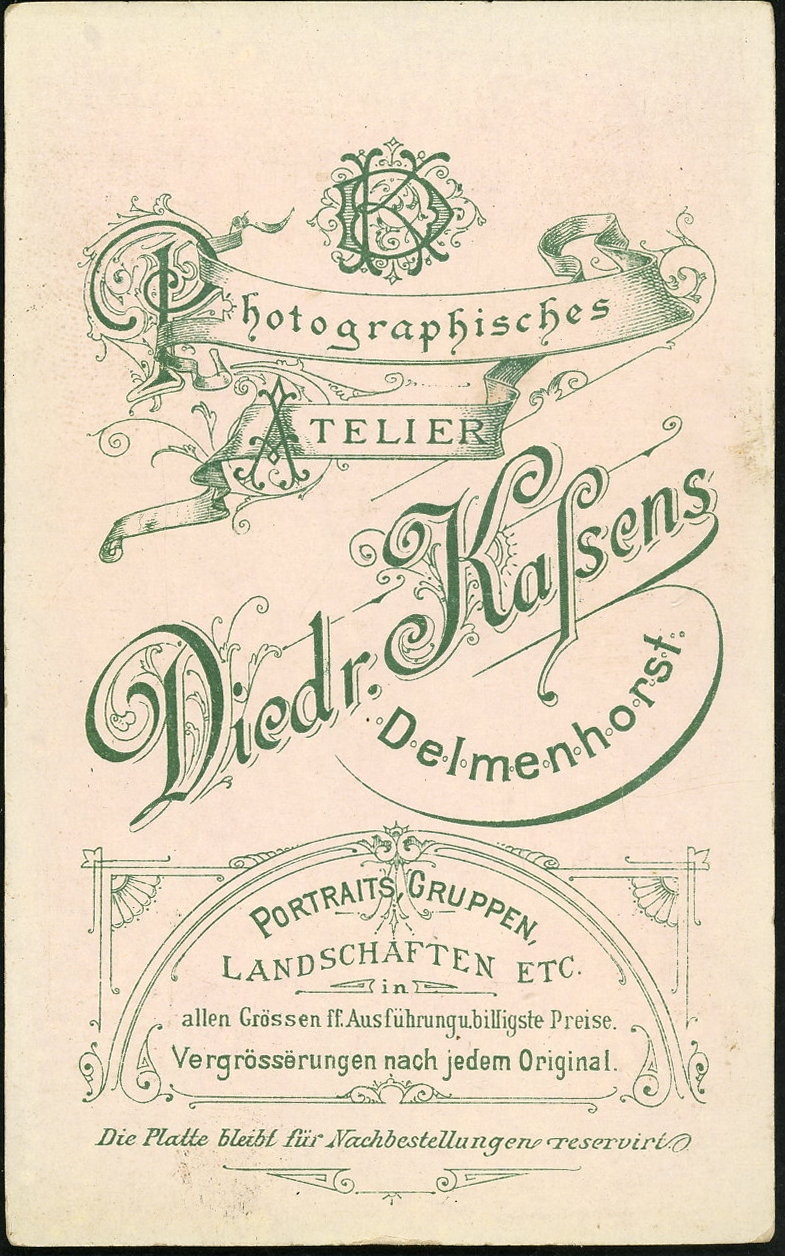 DK
Photographisches
ATELIER
Diedr. Kaſsens
Delmenhorst.
PORTRAITS, GRUPPEN,
LANDSCHAFTEN ETC.
in
allen Grössen ff. Ausführung u. billigste Preise.
Vergrösserungen nach jedem Original.
Die Platte bleibt für Nachbestellungen reservirt.